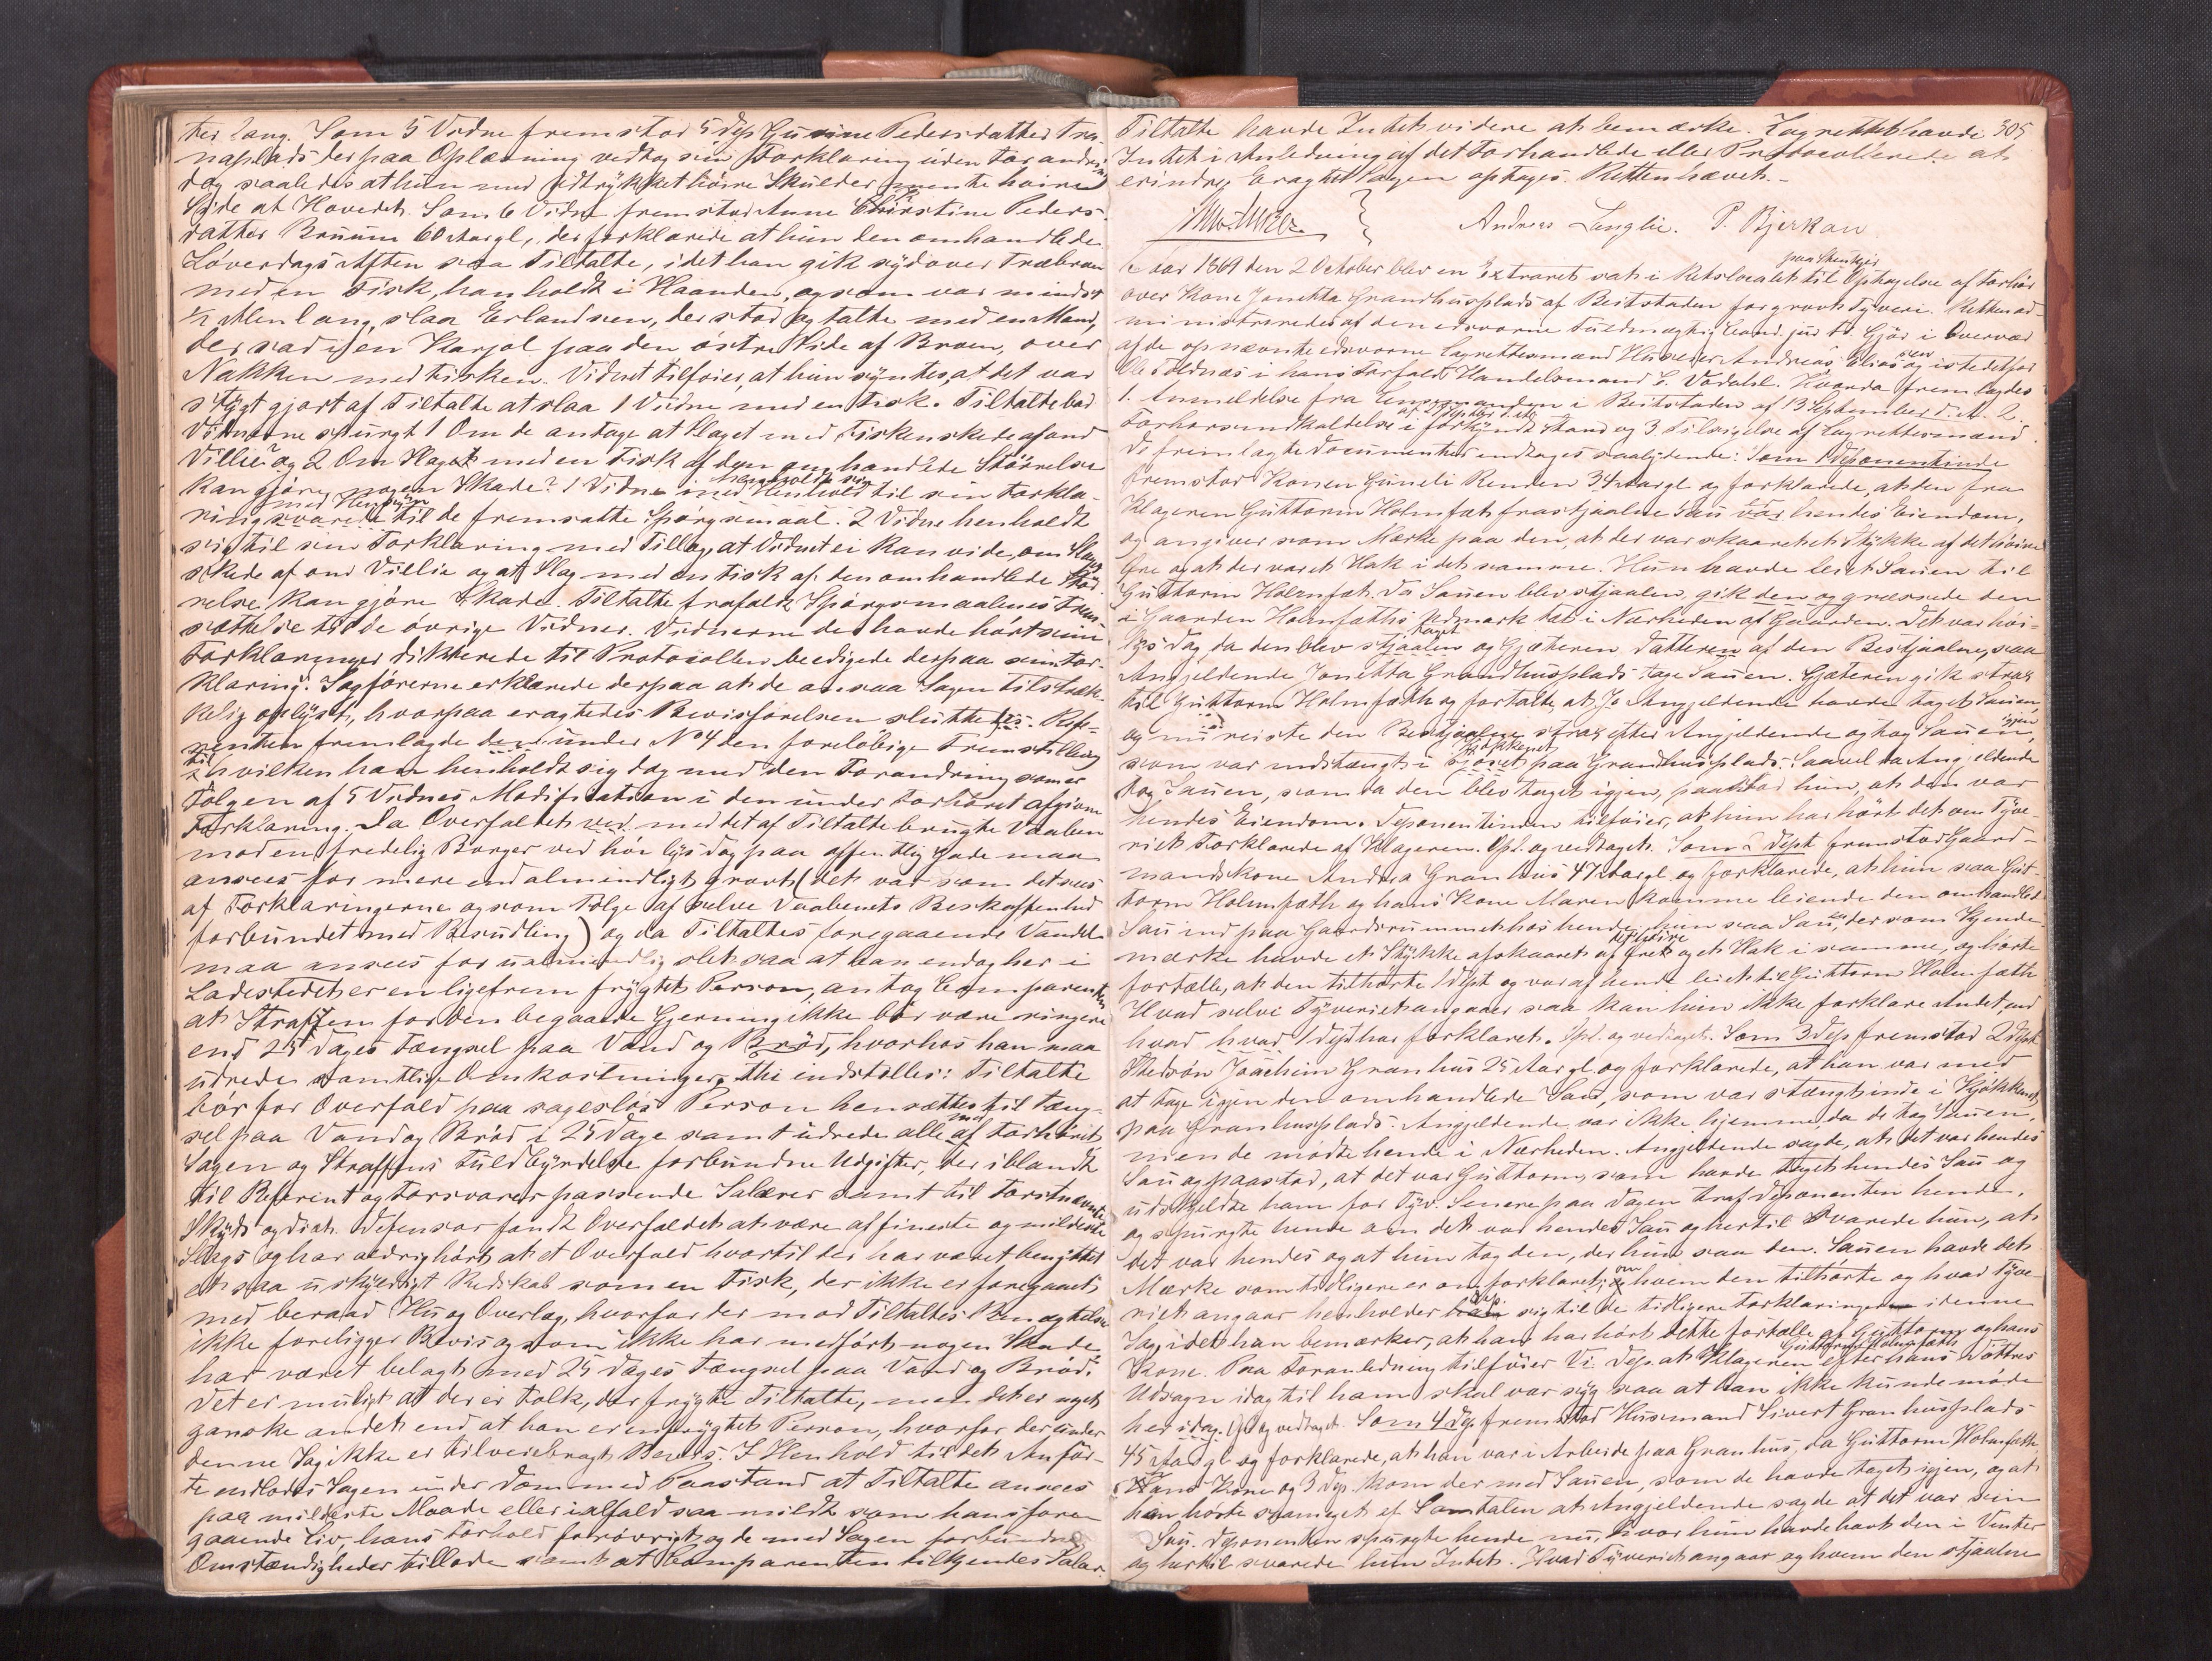 ter lang. Som 5 Vidne fremstod 5 Dep Gurine Pedersdatter Tra-
naplads der paa Oplæsning vedtog sin Forklaring uden Forandring
dog saaledes at hun med Udtrykket høire Skulder mente høire
Side af Hovedet. Som 6 Vidne fremstod Anne Christine Peders-
datter Bruum 60 Aargl., der forklarede at hun den omhandlede
Løverdags Aften saa Tiltalte, idet han gik sydover Træbroen
med en Fisk, han holdt i Haanden, og som var mindst
1/2 Alen lang, slaa Erlandsen, der stod og talte med en Mand,
der sad i en Karjol paa den østre Side af Broen, over
Nakken med Fisken. Vidnet tilføier, at hun syntes, at det var
stygt gjort af Tiltalte at slaa 1 Vidne med en Fisk. Tiltalte bad
Vidnerne spurgt 1 Om de antage at Slaget med Fisken skede af ond
Villie? og 2 Om Slaget med en Fisk af den omhandlede Størrelse
kan gjøre nogen Skade? 1 Vidne henholdt sig til sin Forkla-
ring med Hensyn til de fremsatte Spørgsmaal. 2 Vidne henholdt
sig til sin Forklaring med Tillæg, at Vidnet ei kan vide, om Slag
skede af ond Villie og at Slag med en Fisk af den omhandlede Stør-
relse kan gjøre Skade. Tiltalte frafaldt Spørgsmaalenes Frem-
sættelse til de øvrige Vidner. Vidnerne der havde hørt sine
Forklaringer dikterede til Protocollen beedigede derpaa sin For-
klaring. Sagførerne erklærede derpaa at de ansaa Sagen tilstræk-
kelig oplyst, hvorpaa eragtedes Bevisførelsen sluttet. Refe-
renten fremlagde den under No 4 den foreløbige Fremstilling
til hvilken han henholdt sig dog med den Forandring som er
Følgen af 5 Vidnes Modification i den under Forhøret afgivne
Forklaring. Da Overfaldet ved med det af Tiltalte brugte Vaaben
mod en fredelig Borger ved høi lys Dag paa offentlig Gade maa
ansees for mere end almindeligt grovt (det var som det sees
af Forklaringerne og som Følge af selve Vaabenets Beskaffenhed
forbundet med Besudling) og da Tiltaltes foregaaende Vandel
maa ansees for ualmindelig slet saa at han endog her i
Ladestedet er en ligefrem frygtet Person, antog Comparenten
at Straffen for den begaaede Gjerning ikke bør være ringere
end 25 Dages Fængsel paa Vand og Brød, hvorhos han maa
udrede samtlige Omkostninger, thi indstilles: Tiltalte
bør for Overfald paa sagesløs Person hensættes til Fæng-
sel paa Vand og Brød i 25 Dage samt udrede alle med Forhøret,
Sagen og Straffens Fuldbyrdelse forbundne Udgifter, der iblandt
til Referent og Forsvarer passende Salærer samt til Førstnævnte
Skyds og Diæt. Defensor fandt Overfaldet at være af fineste og mildeste
Slags og har aldrig hørt at et Overfald hvortil der har været benyttet
et saa uskyldigt Redskab som en Fisk, der ikke er foregaaet
med beraad Hu og Overlæg, hvorfor der mod Tiltaltes Benægtelse
ikke foreligger Bevis og som ikke har medført nogen Skade
har været belagt med 25 Dages Fængsel paa Vand og Brød.
Det er muligt at der er Folk, der frygte Tiltalte, men det er noget
ganske andet end at han er en frygtet Person, hvorfor der under
denne Sag ikke er tilveiebragt Beviis. I Henhold til det Anfør-
te indlodes Sagen under Dom med Paastand at Tiltalte ansees
paa mildeste Maade eller ialfald saa mildt som hans fore-
gaaende Liv, hans Forhold forøvrigt og de med Sagen forbundne
Omstændigheder tillade samt at Comparenten tilkjendes Salær.
Tiltalte havde Intet videre at bemærke. Lagrettet havde 305
Intet i Anledning af det Forhandlede eller Protocollerede at
erindre. Eragtet Sagen optages. Retten hævet.
Andreas Langlie. P. Bjerkan
Aar 1869 den 2 October blev en Extraret sat i Retslocalet paa Stenkjær til Optagelse af Forhør
over Kone Jonetta Grandhusplads af Beitstaden for grovt Tyveri. Retten ad-
ministreredes af den edsvorne Fuldmægtig Cand. jur. Gjør i Overvær
af de opnævnte edsvorne Lagrettesmænd Huseier Andreas Eliassen og istedetfor
Ole Foldnæs i hans Forfald Handelsmand C. Vodahl. Hvorda fremlagdes
1. Anmeldelse fra Lensmanden i Beitstaden af 13 September d. A. 2.
Forhørsindkaldelse af 27 Septber d. A. i forkyndt Stand og 3 Tilsigelse af Lagrettesmænd.
De fremlagte Documenter indtages saalydende: Som 1 Deponentinde
fremstod Konen Guneli Renden 34 Aargl og forklarede, at den fra
Klageren Guttorm Holmfæt frastjaalne Sau var hendes Eiendom,
og angiver som Mærke paa den, at der var skaaret et Stykke af det høire
Øre og at der var et Hak i det samme. Hun havde leiet Sauen til
Guttorm Holmfæt. Da Sauen blev stjaalen, gik den og græssede den
i Gaarden Holmfætts Udmark tæt i Nærheden af Gaarden. Det var høi-
lys Dag, da den blev stjaalen taget og Gjæteren, Datteren af den Bestjaalne, saa
Angjeldende Jonetta Grandhusplads tage Sauen. Gæteren gik strax
til Guttorm Holmfæth og fortalte, at Jo Angjeldende havde taget Sauen,
og nu reiste den Bestjaalne strax efter Angjeldende og tog Sauen igjen,
som var indstængt i Kjøkkenet paa Grandhusplads. Saavel da Angjeldende
tog Sauen, som da den blev taget igjen, paastod hun, at den var
hendes Eiendom. Deponentinden tilføier, at hun har hørt det om Tyve-
riet Forklarede af Klageren. Opl. og vedtaget. Som 2 Dept fremstod Gaard-
mandskone Andrea Granhus 47 Aargl. og forklarede, at hun saa Gut-
torm Holmfæth og hans Kone Maren komme leiende den omhandlede
Sau ind paa Gaardsrummet hos hende, hun saa Sauen, der som Kjende-
mærke havde et Stykke afskaaret af det høire Øre og et Hak i samme, og hørte
fortælle, at den tilhørte 1 Dept og var af hende leiet til Guttorm Holmfæth
Hvad selve Tyveriet angaaer saa kan hun ikke forklare Andet, end
hvad hvad 1 Dept har forklaret. Opl. og vedtaget. Som 3 Dep fremstod 2 Depts
Stedsøn Joachim Granhus 25 Aar gl. og forklarede, at han var med
at tage igjen den omhandlede Sau, som var stængt inde i Kjøkkenet
paa Granhusplads. Angjeldende var ikke hjemme, da de tog Sauen,
men de mødte hende i Nærheden. Angjeldende sagde, at det var hendes
Sau og paastod, at det var Guttorm, som havde taget hendes Sau og
udskjeldte ham for Tyv. Senere paa Dagen traf Deponenten hende,
og spurgte hende om det var hendes Sau og hertil svarede hun, at
det var hendes og at hun tog den, der hun saa den. Sauen havde det
Mærke som tidligere er omforklaret; om hvem den tilhørte og hvad Tyve-
riet angaar henholder Dep. sig til de tidligere Forklaringer i denne
Sag, idet han bemærker, at han har hørt dette fortælle af Guttorm og hans
Kone. Paa Foranledning tilføier Vi. Dep. at Klageren Guttorm Holmfæth efter hans Dottres
Udsagn idag til ham skal var syg saa at han ikke kunde møde
her idag. Opl. og vedtaget. Som 4 Dep. fremstod Husmand Sivert Granhusplads
45 Aar gl og forklarede, at han var i Arbeide paa Granhus, da Guttorm Holmfæth,
Hans Kone og 3 Dep. kom der med Sauen, som de havde taget igjen, og at
han hørte saameget af Samtalen at Angjeldende sagde at det var sin
Sau. Deponenten spurgte hende nu, hvor hun havde havt den i Vinter
og hertil svarede hun Intet. Hvad Tyveriet angaar og hvem den stjaalne